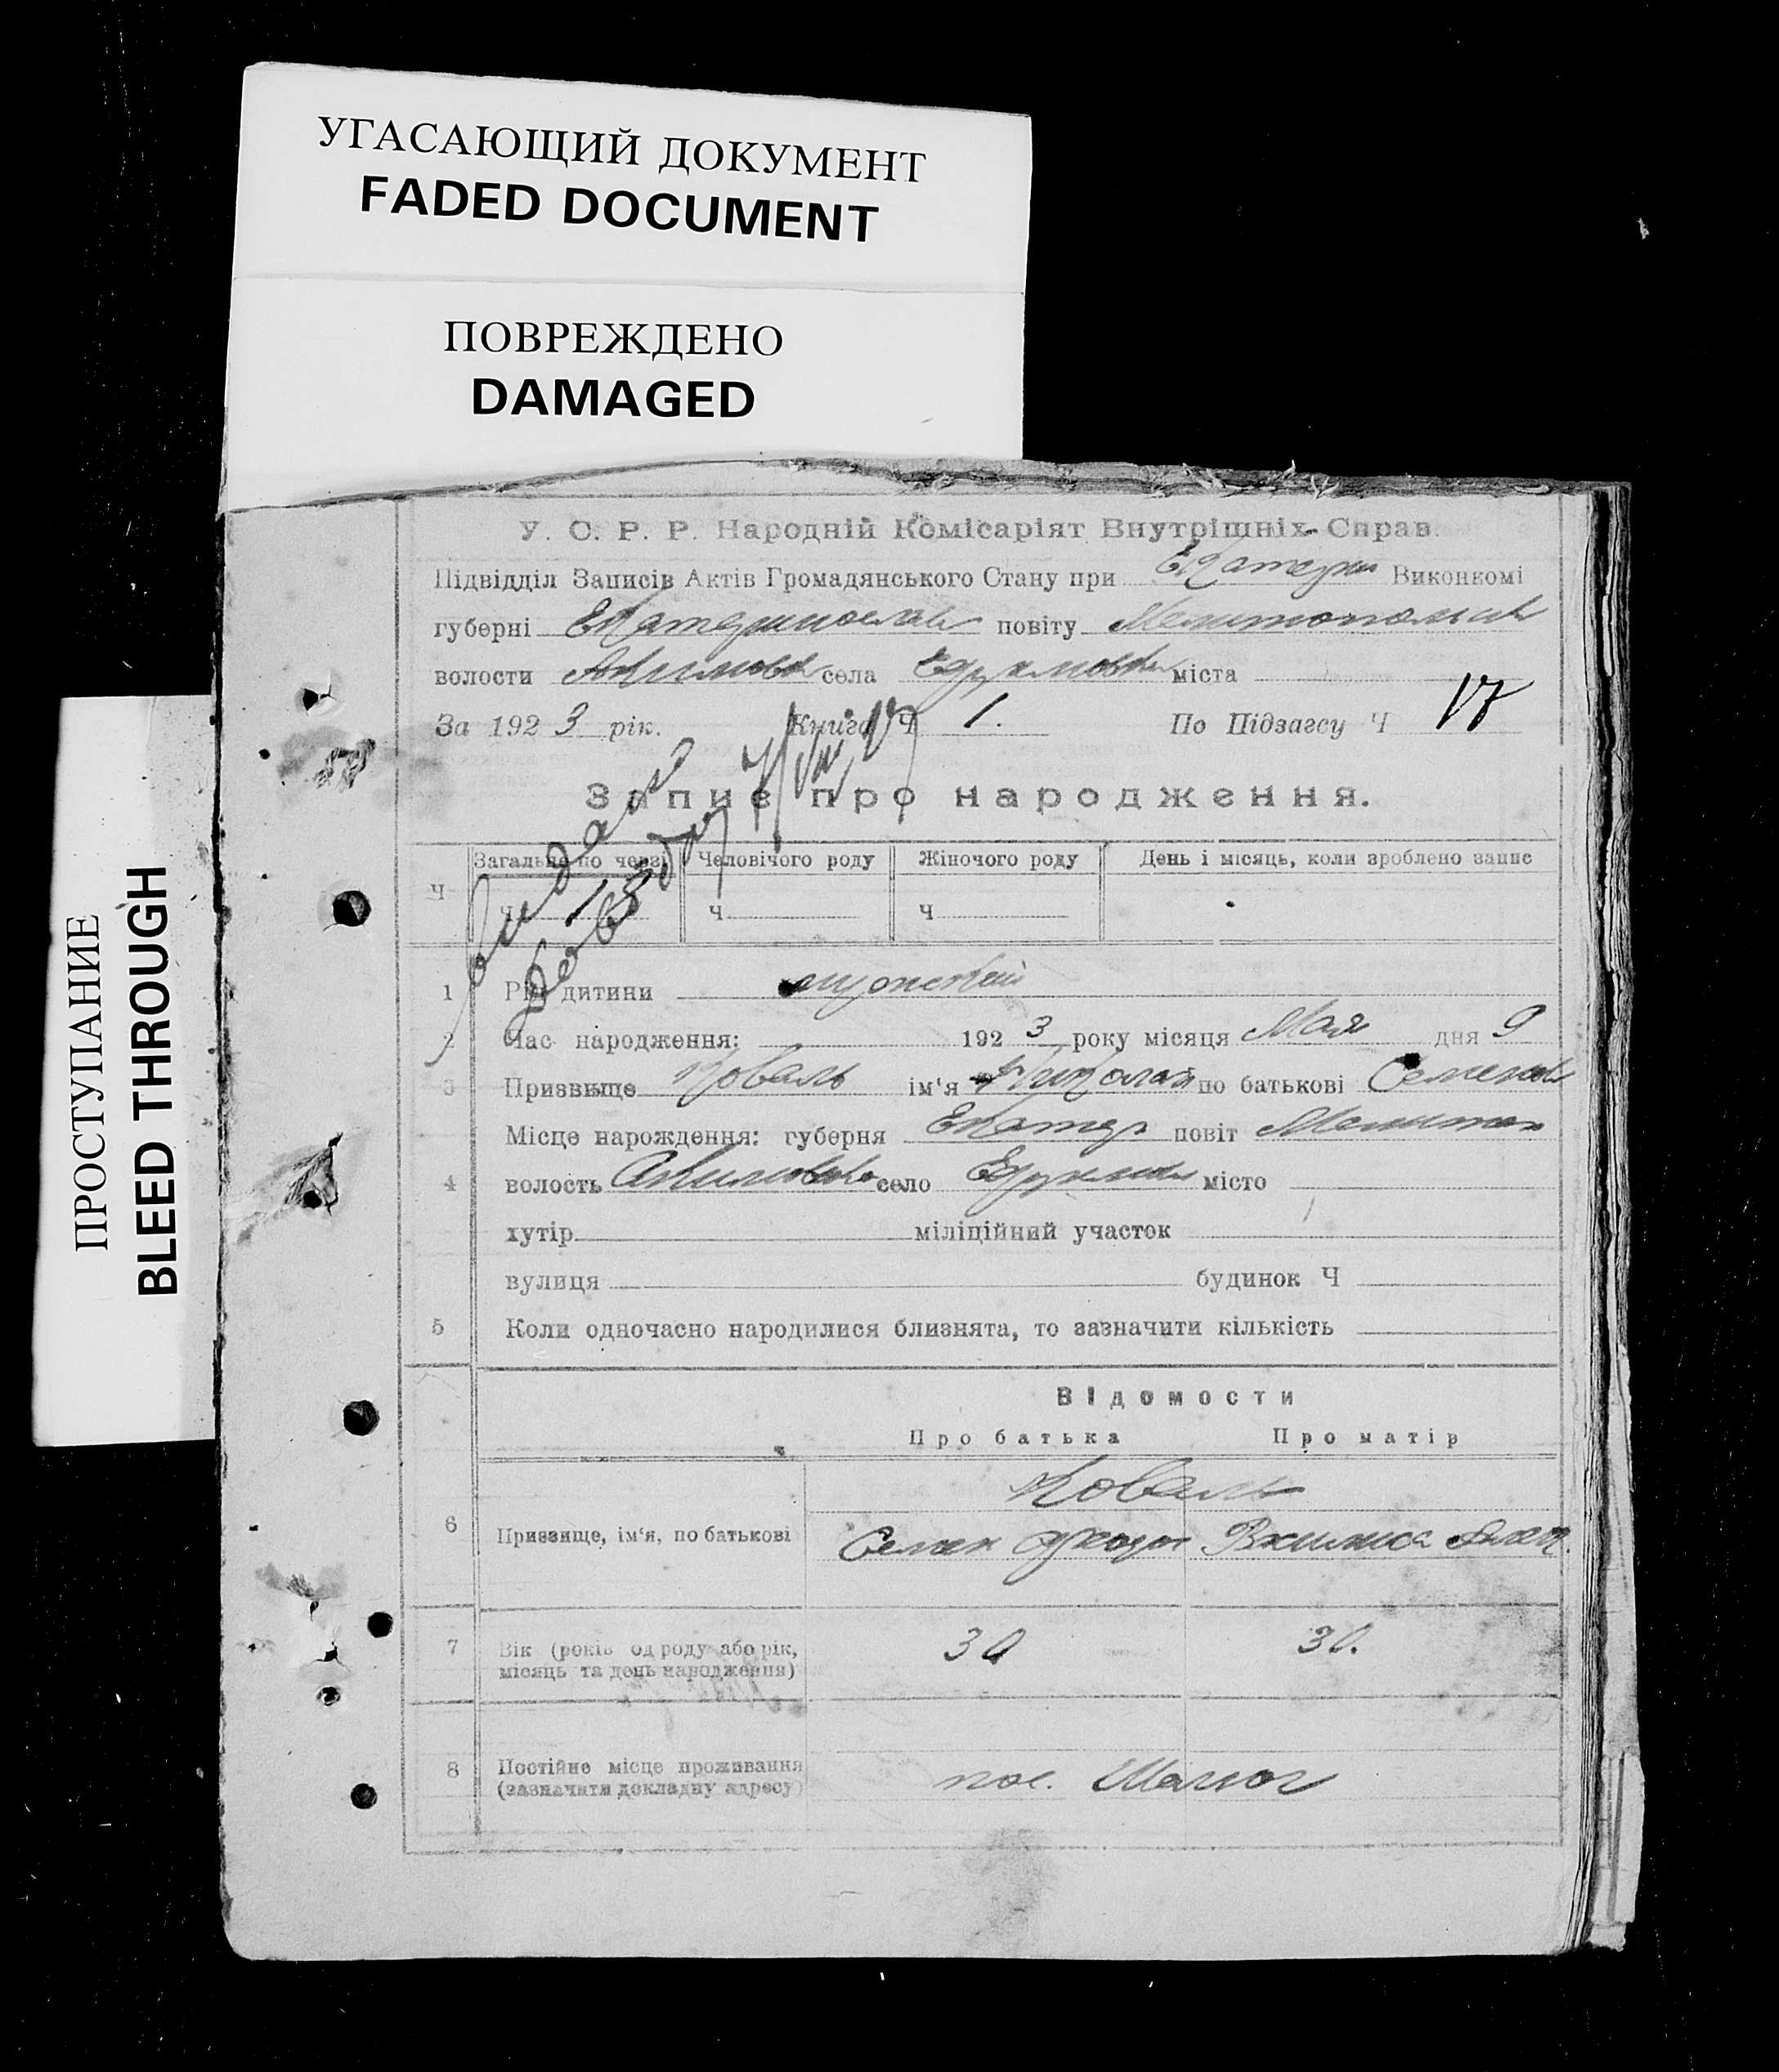 УГАСАЮЩИЙ ДОКУМЕНТ
FADED DOCUMENT
ПОВРЕЖДЕНО
DAMAGED
ПРОСТУПАНИЕ
BLEED THROUGH
У. С. Р. Р. Народній Комісаріят Внутрішніх Справ.
Підвідділ Записів Актів Громадянського Стану при Виконкомі
губерні Екатеринослав повіту Мелитопольск
волости Акимовк села міста
За 1923 рік. Книга Ч 1. По Підзагсу Ч 17
Запис про народження.
Ч Загальне по черзі Человічого роду Жіночого роду День і місяць, коли зроблено запис
Ч 18 Ч Ч
1 Рід дитини мужской
2 Час народження: 1923 року місяця Мая дня 9
3 Призвыще Коваль ім'я Николай по батькові Семенов
Місце нарождення: губерня Екатер повіт Мелитоп
4 волость Акимовка село місто
хутір міліційний участок
вулиця будинок Ч
5 Коли одночасно народилися близнята, то зазначити кількість
Відомости
Про батька Про матір
Коваль
6 Призвище, ім'я, по батькові Семен
7 Вік (років од роду або рік, 30 30.
місяць та день народження)
8 Постійне місце проживання пос.
(зазначити докладну адресу)